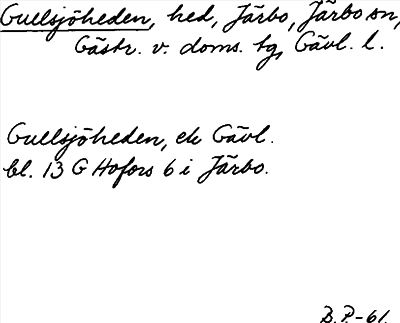 Gullsjöheden, hed, Järbo, Järbo sn,
Gästr. v. doms. tg, Gävl. l.
Gullsjöheden, ek Gävl.
bl. 13 G Hofors 6 i Järbo.
B.P.-61.